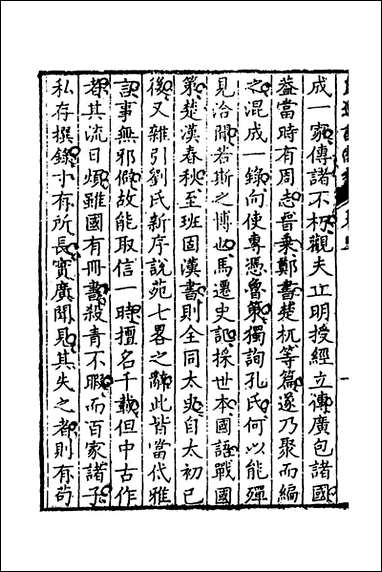 成一家傳諸不朽觀夫丘明授經立傳廣包諸國
葢當時有周志晋乗鄭書楚杌等篇遂乃聚而編
之混成一錄向使專憑魯策獨詢孔氏何以能殫
見洽聞若斯之博也馬遷史記採世本國語戰國
策楚漢春秋至班固漢書則全同太史自太初已
後又雜引劉氏新序說苑七畧之辭此皆當代雅
言事無邪僻故能取信一時擅名千載但中古作
者其流日煩雖國有冊書殺青不暇而百家諸子
私存撰錄寸有所長實廣聞見其失之者則有茍